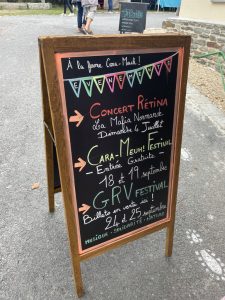 À la ferme Cara-Meuh!
EVENEMENTS
→ CONCERT RETINA
La Mafia Normande
Dimanche 4 Juillet
→ CARA-MEUH! FESTIVAL
- Entrée Gratuite -
18 et 19 septembre
→ GRV FESTIVAL
Billets en vente ici!
24 et 25 septembre
MUSIQUE